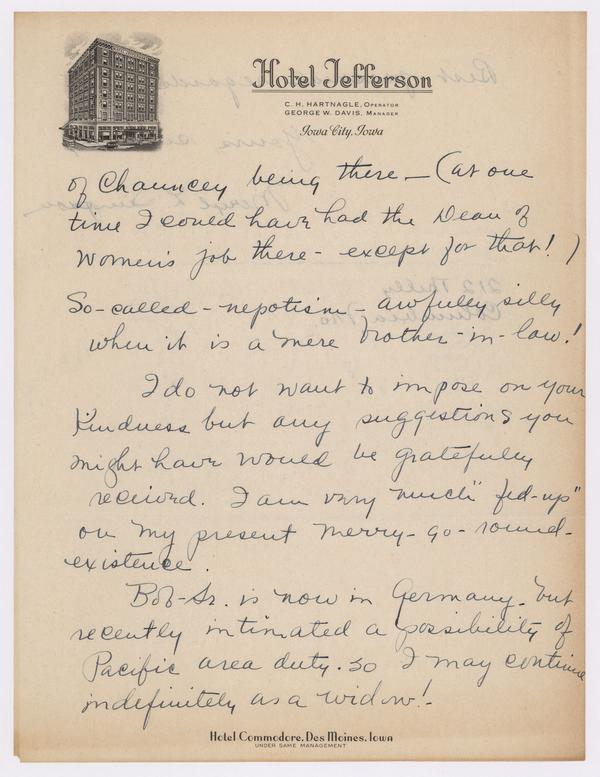 Hotel Jefferson
C. H. HARTNAGLE, OPERATOR
GEORGE W. DAVIS, MANAGER
Iowa City, Iowa
of Chauncey being there — (at one
time I could have had the Dean of
Women's job there - except for that! )
So-called - nepotism - awfully silly
when it is a mere brother-in-law!
I do not want to impose on your
kindness but any suggestions you
might have would be gratefully
received. I am very much "fed-up"
on my present merry-go-round-
existence.
Bob-Sr. is now in Germany - but
recently intimated a possibility of
Pacific area duty. so I may continue
indefinitely as a widow! -
Hotel Commodore, Des Moines, Iowa
UNDER SAME MANAGEMENT